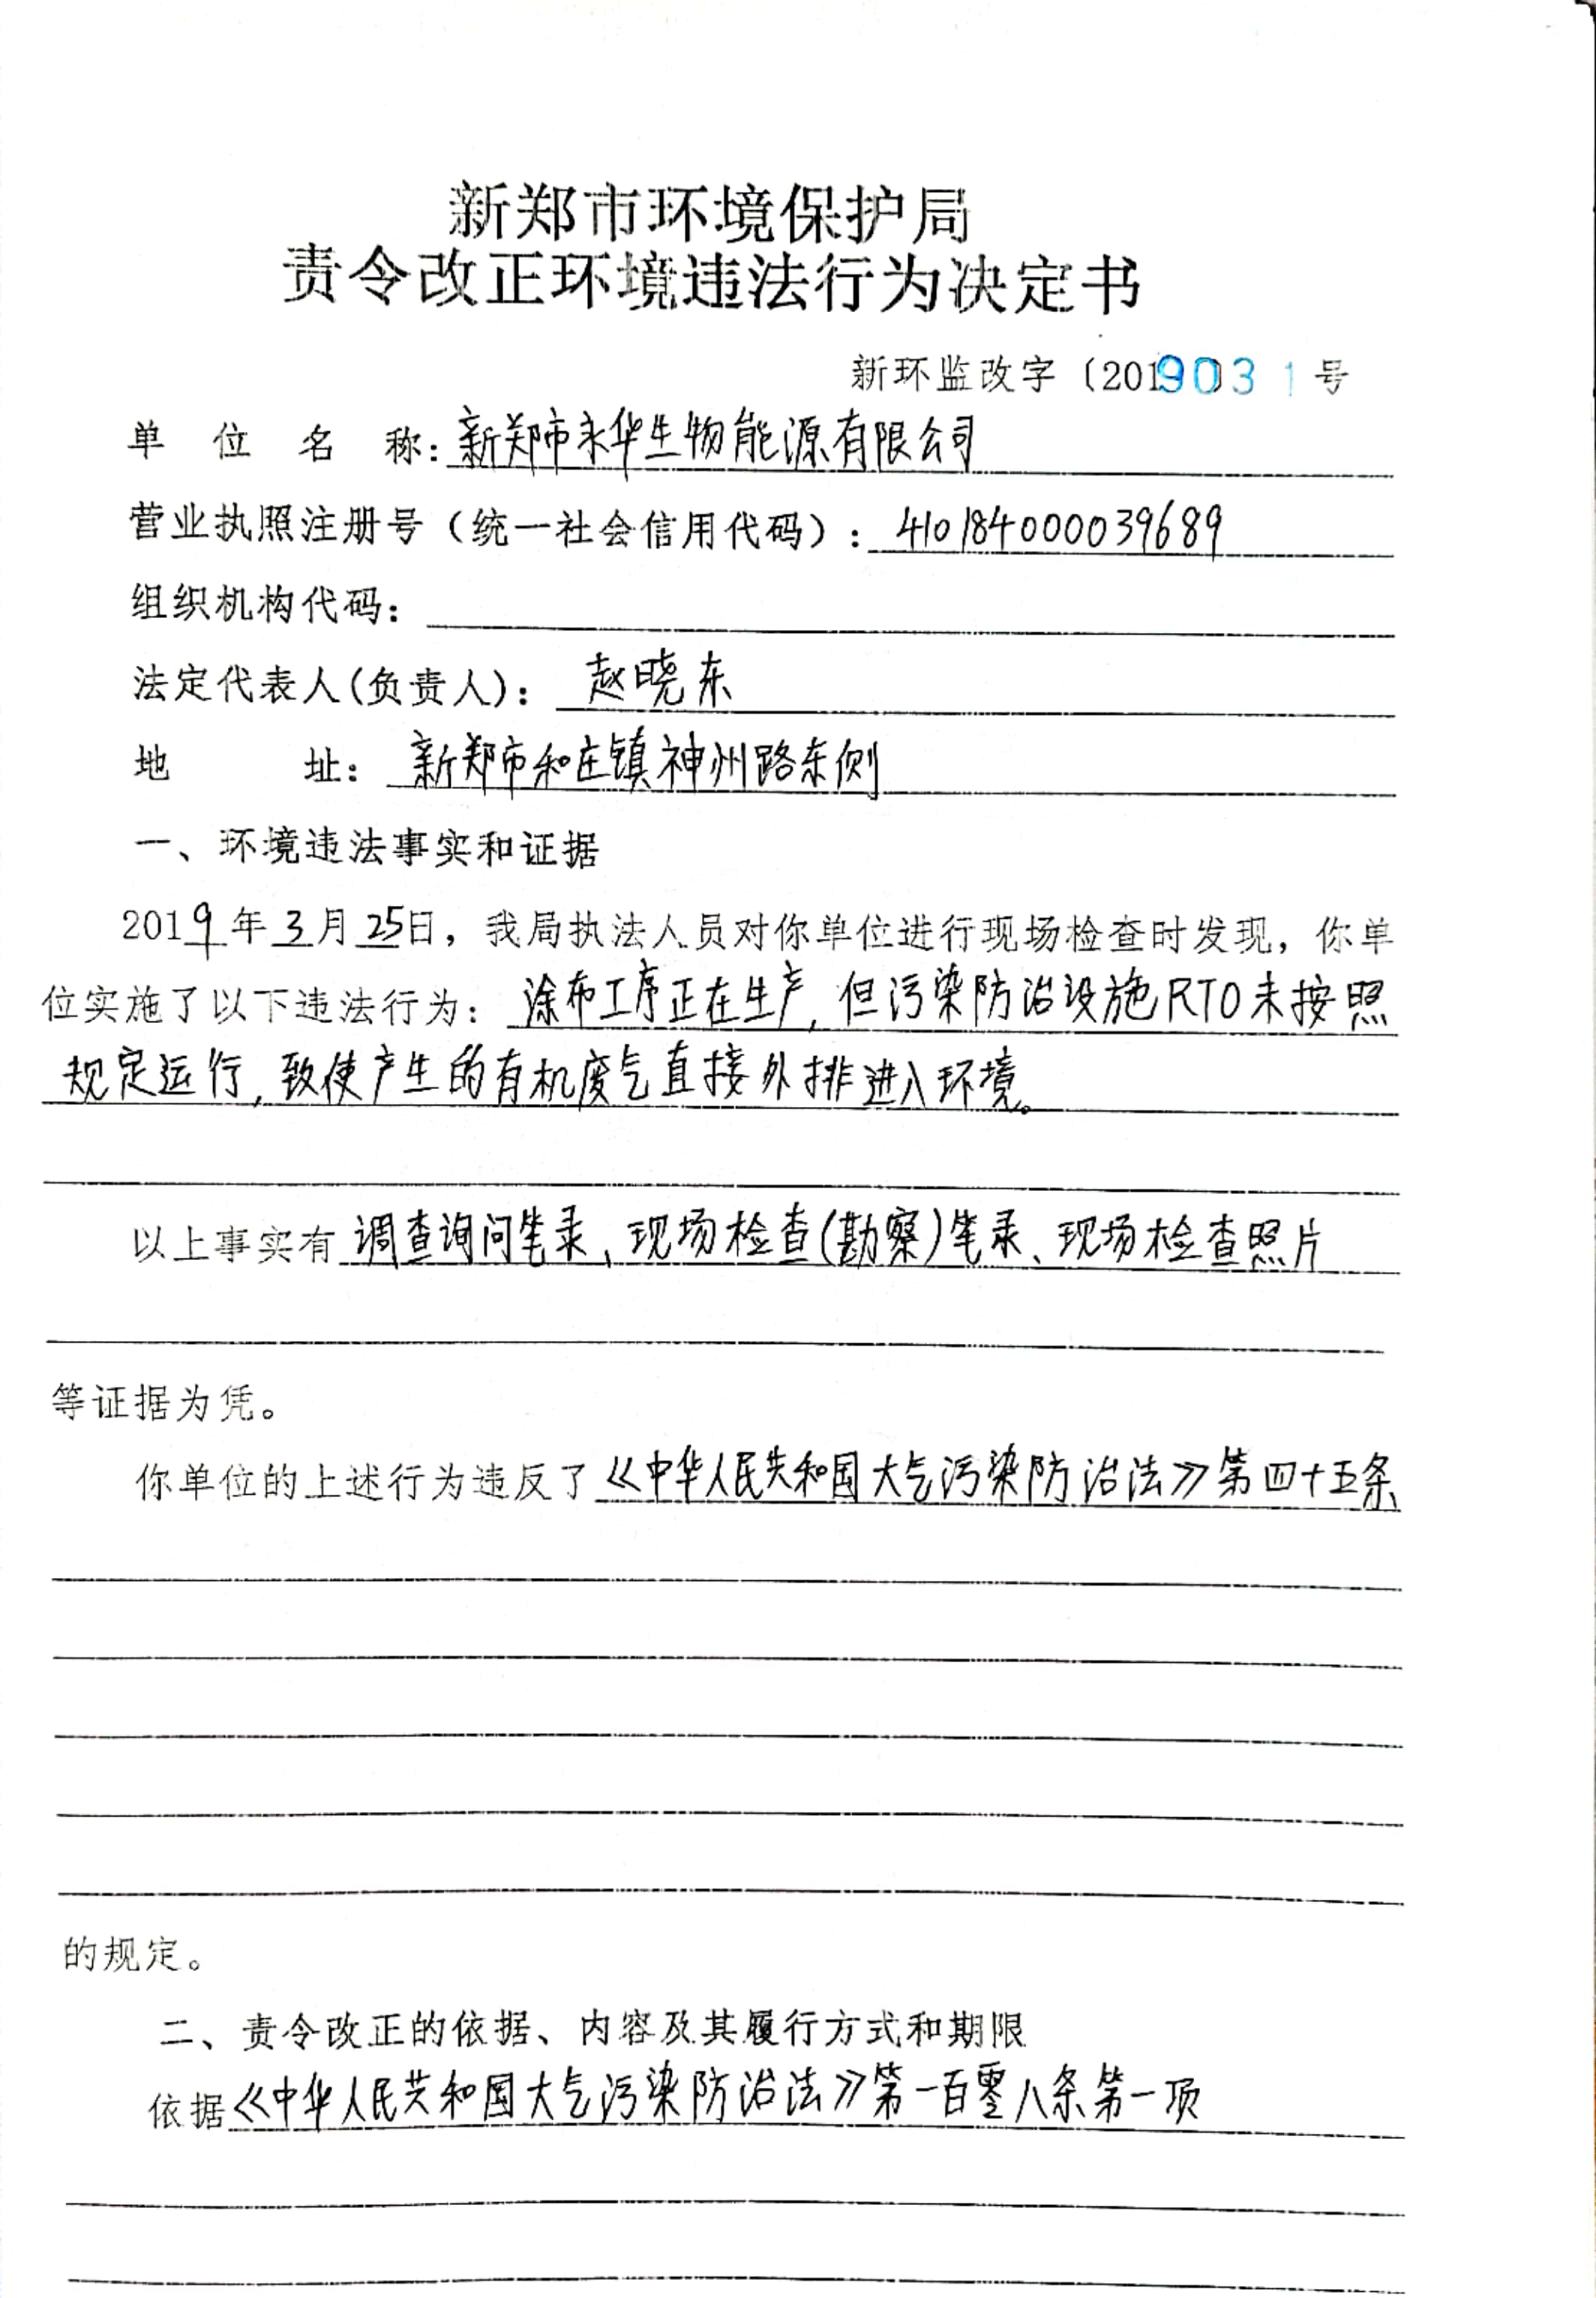 新郑市环境保护局
责令改正环境违法行为决定书
新环监改字〔2019031号
单位名称：新郑市永华生物能源有限公司
营业执照注册号（统一社会信用代码）：410184000039689
组织机构代码：
法定代表人(负责人)：赵晓东
地址：新郑市和庄镇神州路东侧
一、环境违法事实和证据
2019年3月25日，我局执法人员对你单位进行现场检查时发现，你单
位实施了以下违法行为：涂布工序正在生产，但污染防治设施RTO未按照
规定运行，致使产生的有机废气直接外排进入环境。
以上事实有调查询问笔录、现场检查(勘察)笔录、现场检查照片
等证据为凭。
你单位的上述行为违反了《中华人民共和国大气污染防治法》第四十五条
的规定。
二、责令改正的依据、内容及其履行方式和期限
依据《中华人民共和国大气污染防治法》第一百零八条第一项